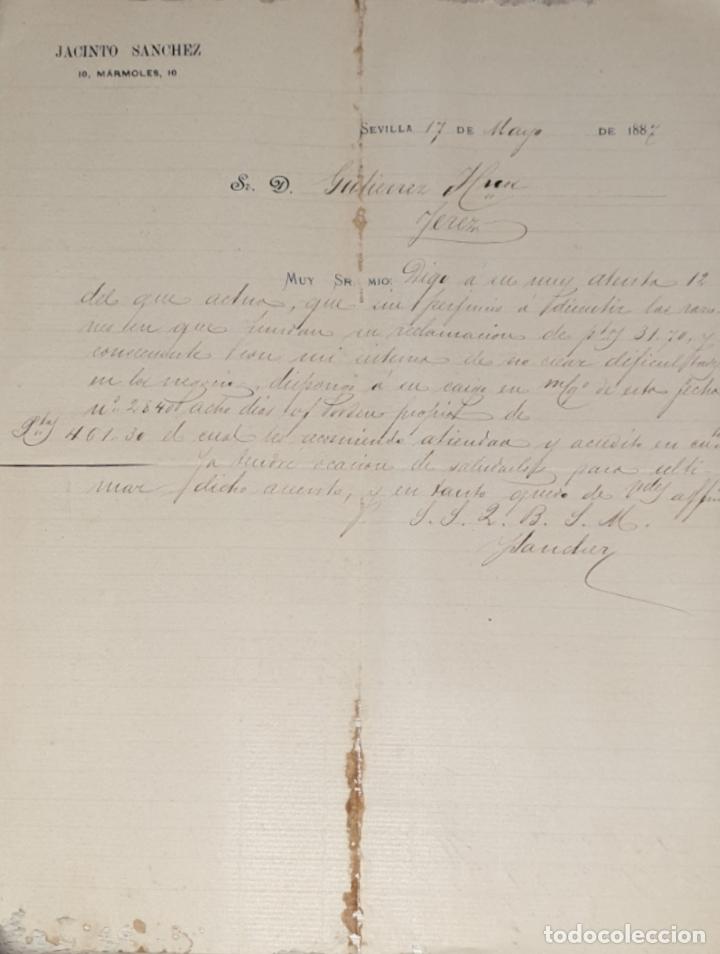 JACINTO SANCHEZ
10, MÁRMOLES, 10
SEVILLA 17 DE Mayo DE 1887
Sr. D. Gutierrez Hnos
Jerez
MUY SR. MIO: Digo á su muy atenta 12
del que actua, que sin perjuicio á discutir las razo
nes en que fundan su reclamacion de ptas 31.70, y
consecuente con mi sistema de no crear dificultades
en los negocios, dispongo á su cargo en de esta fecha
nº 28400 ocho dias orden propia de
Ptas 461.30 el cual les acomiendo atiendan y acredito en cta
Ya tendre ocacion de saludarles para ulti
mar dicho asunto, y en tanto quedo de Vdes affmo
S. S. Q. B. S. M.
JSanchez
todocoleccion